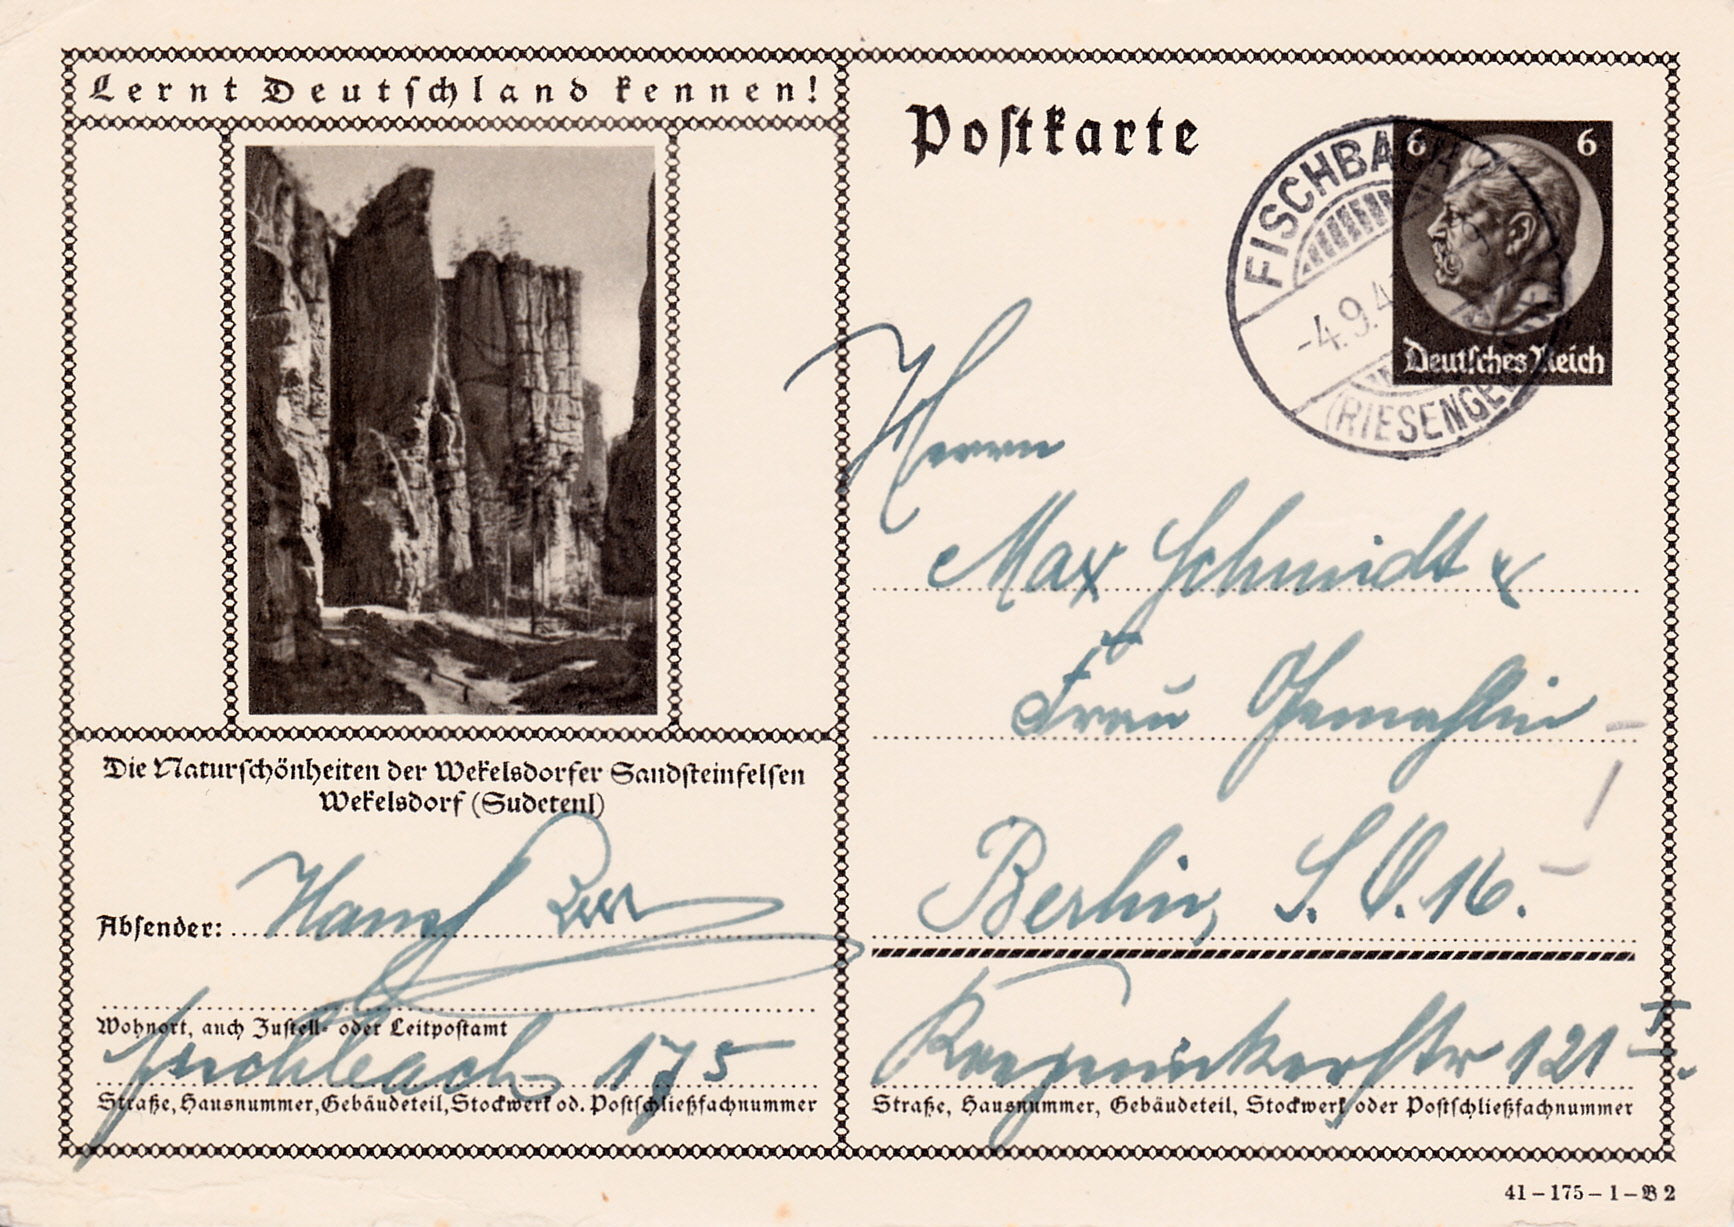 Lernt Deutschland kennen!
Die Naturschönheiten der Wekelsdorfer Sandsteinfelsen
Wekelsdorf (Sudetenl)
Absender: Hans
Wohnort, auch Zustell- oder Leitpostamt
Fischbach 175
Straße, Hausnummer, Gebäudeteil, Stockwerk od. Postschließfachnummer
Postkarte
6 6
Deutsches Reich
FISCHBACH
-4.9.4
(RIESENGE
Herrn
Max Schmidt &
Frau Gemahlin
Berlin, S. O. 16.
121 I.
Straße, Hausnummer, Gebäudeteil, Stockwerk oder Postschließfachnummer
41-175-1-B 2